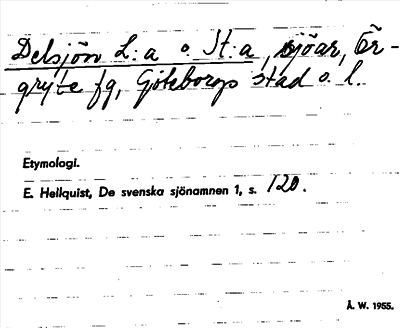 Delsjön L:a o. St:a, sjöar, Ör-
gryte fg, Göteborgs stad o. l.
Etymologi.
E. Hellquist, De svenska sjönamnen 1, s. 120.
Å. W. 1955.